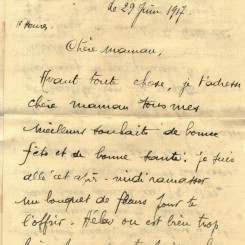 le 29 Juin 1917.
17 heures.
Chère maman,
Avant toute chose, je t'adresse
chère maman tous mes
meilleurs souhaits de bonne
fête et de bonne santé. je suis
allé cet après-midi ramasser
un bouquet de fleurs pour te
l'offrir. Hélas on est bien trop